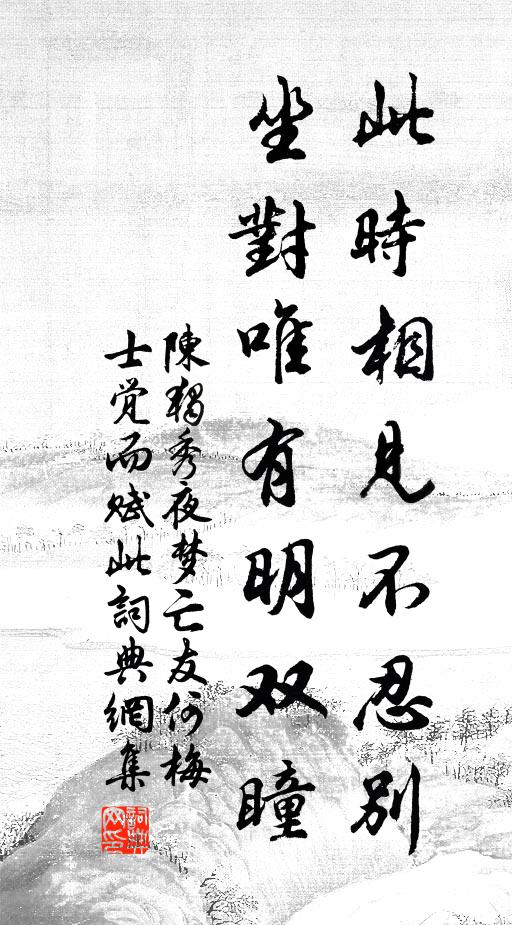 此時相見不忍别
坐對唯有明双瞳
陳獨秀夜梦亡友何梅
士觉而赋此詞典網集